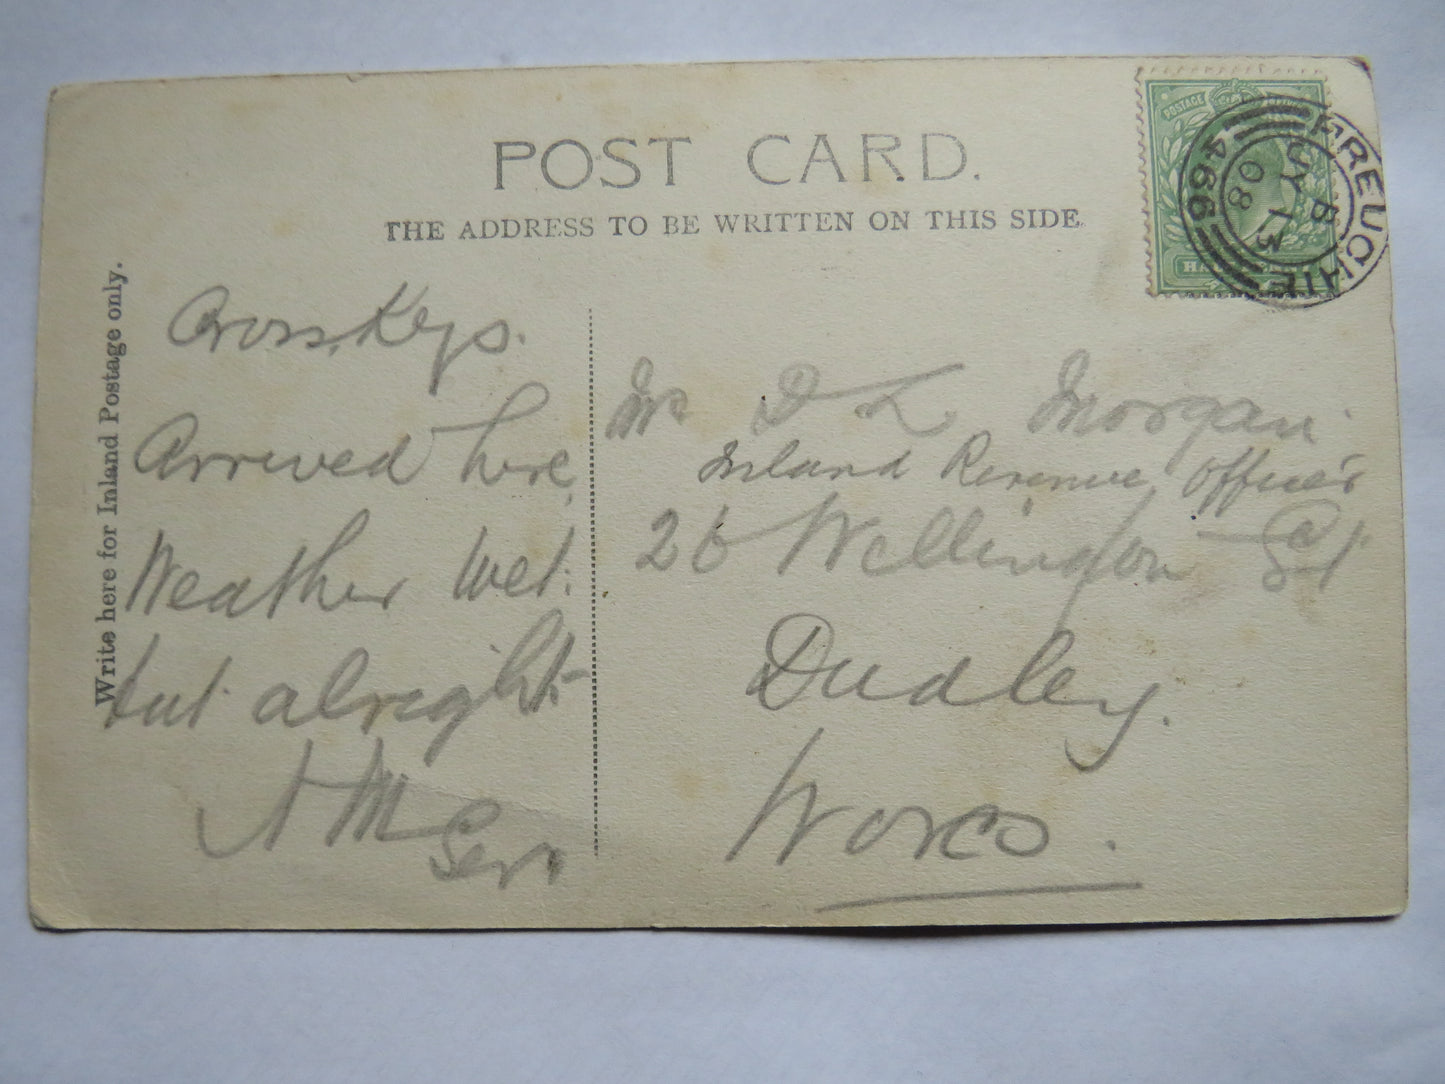 POST CARD.
THE ADDRESS TO BE WRITTEN ON THIS SIDE.
Write here for Inland Postage only.
Cross Keys.
Arrived here
Weather wet.
but alright
Senr
Mr D L Morgan
Inland Revenue Officer
26 Wellington St
Dudley.
Worcs.
POSTAGE
FREUCHIE
B
JY 13
08
466